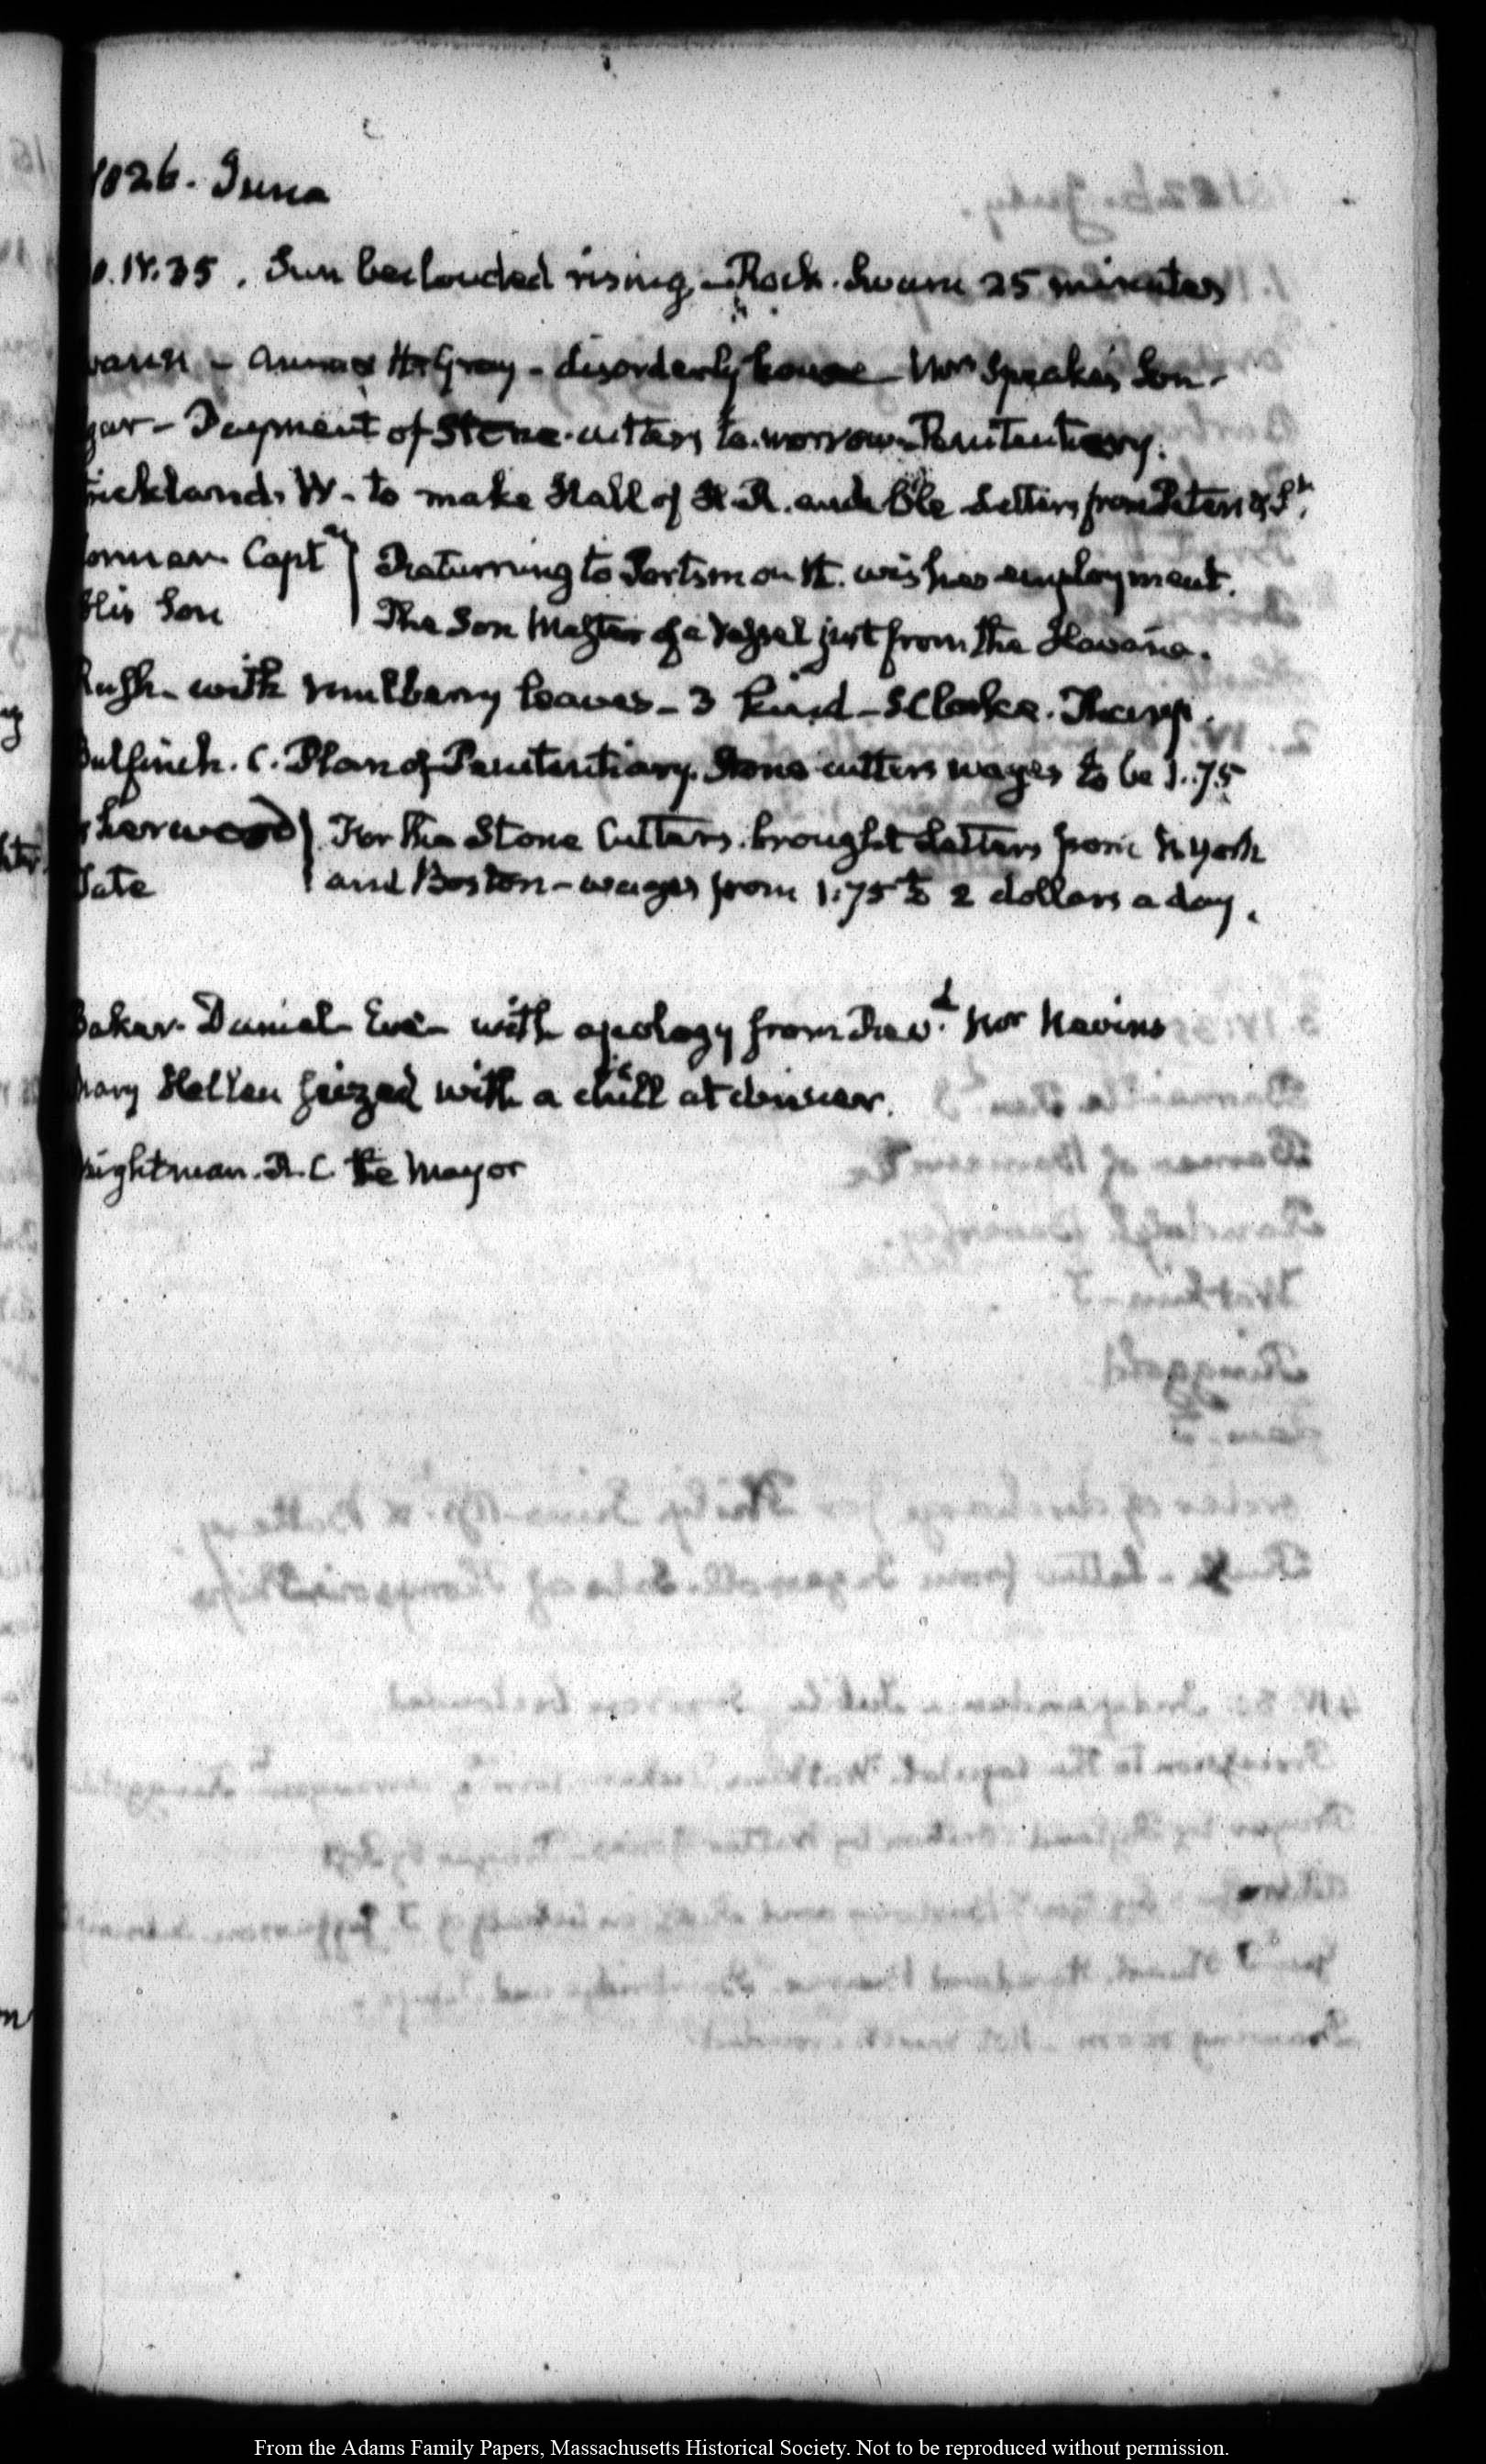 1826. June
0. IV:35. Sun beclouded rising. Rock. Swam 25 minutes
wann - Gray - disorderly house - Mrs Speake's Son.
gar - Payment of Stone-cutters to-morrow - Penitentiary.
rickland. W. to make Hall of H.R. audible Letters from Peter &
orman Capt } Returning to Portsmouth. wishes employment.
His Son } The Son Master of a Vessel just from the Havana.
Rush - with mulberry leaves - 3 kind - S Clarke.
Bulfinch. C. Plan of Penitentiary. Stone cutters wages to be 1..75
herwood } For the Stone Cutters. brought Letters from N. York
Tate } and Boston - wages from 1:75 to 2 dollars a day.
Baker. Daniel Eve - with apology from Revd. Mr Nevins
Mary Hellen seized with a chill at dinner.
Wightman. R. C. the Mayor
From the Adams Family Papers, Massachusetts Historical Society. Not to be reproduced without permission.